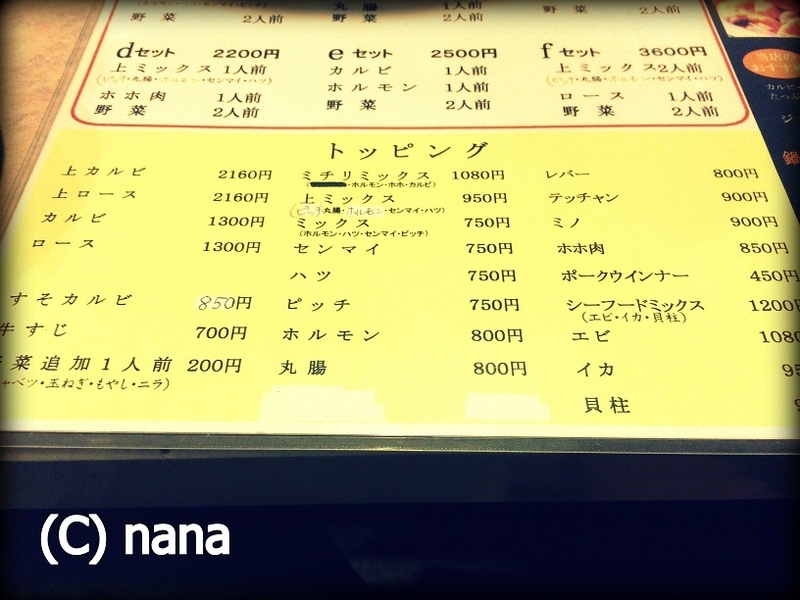 野菜 2人前
丸腸
野菜 2人前
野菜 2人前
dセット 2200円
上ミックス 1人前
(ピッチ・丸腸・ホルモン・センマイ・ハツ)
ホホ肉 1人前
野菜 2人前
eセット 2500円
カルビ 1人前
ホルモン 1人前
野菜 2人前
fセット 3600円
上ミックス2人前
(ピッチ・丸腸・ホルモン・センマイ・ハツ)
ロース 1人前
野菜 2人前
トッピング
上カルビ 2160円
上ロース 2160円
カルビ 1300円
ロース 1300円
すそカルビ 850円
牛すじ 700円
菜追加1人前 200円
ャベツ・玉ねぎ・もやし・ニラ)
ミチリミックス 1080円
・ホルモン・ホホ・カルビ)
上ミックス 950円
(ピッチ・丸腸・ホルモン・センマイ・ハツ)
ミックス 750円
(ホルモン・ハツ・センマイ・ピッチ)
センマイ 750円
ハツ 750円
ピッチ 750円
ホルモン 800円
丸腸 800円
レバー 800円
テッチャン 900円
ミノ 900円
ホホ肉 850円
ポークウインナー 450円
シーフードミックス 1200
(エビ・イカ・貝柱)
エビ 1080
イカ 95
貝柱
当店の
カルビ・
たっぷ
ジ
鍋
(C) nana